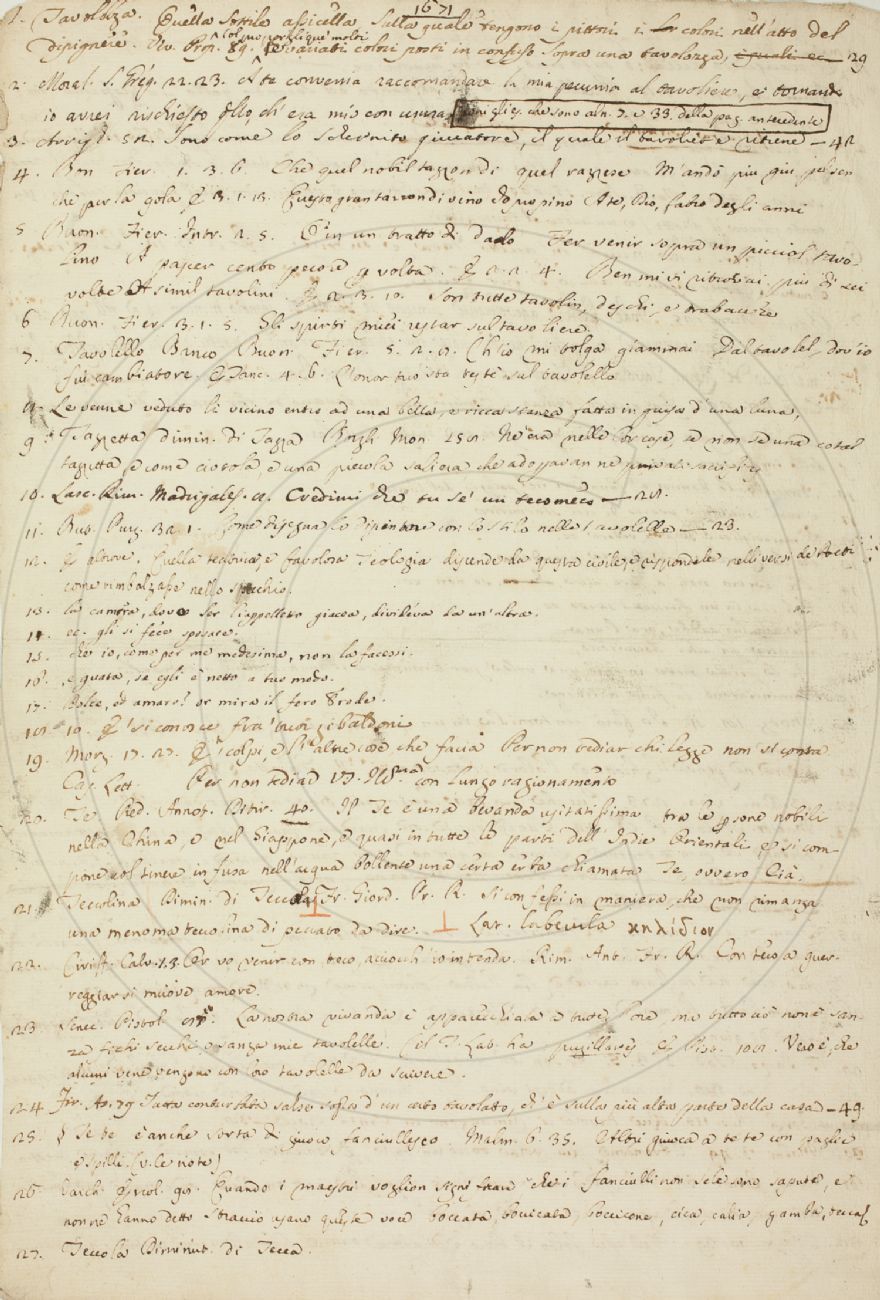 1671
1. Tavolozza. Quella sottile assicella sulla quale tengono i pittori i colori nell'atto del
dipignere. 89. colori posti in confuso sopra una tavolozza, 29
2. Moral. S. Greg. 22. 23. te convenia raccomandare la mia pecunia al tavoliere, e tornando
io avrei rischiesto era mio con usura che sono al n. 7. e 33. della pag. antecedente
3. Arrigh. 52. Sono come lo schernito giucatore, il quale il tavoliere ritiene — 42
4. Bon Fier. 1. 3. 6. Che quel nobil tazzon di quel razzese M'andò più giù
che per la gola 3. 1. 13. Questo gran tazzon di vino Ate, Bio, fabro degli anni
5 Buon. Fier. Intr. 2. 5. in un tratto di dado Fer venir sopra un picciol tavo-
lino A pascer cento pecore volta. 2. 2. 4. Ben mi vi ritrovai più di sei
volte A simil tavolini. 2. 3. 10. Son tutte tavolin, deschi, e trabacche
6 Buon. Fier. 3. 1. 5. Gli spirti miei restar sul tavoliere.
7. Tavolello Banco Buon. Fier. 5. 2. Ch'io mi tolga giammai Dal tavolel, dov'io
fui cambiatore. Tanc. 4. 6. L'onor tuo sta sul tavolello
Le venne veduto lì vicino entro ad una bella, e ricca stanza fatta in guisa d'una luna,
9. Tazzetta dimin. di Tazza Borgh. Mon. Ne era nelle lor case se non se una cotal
tazzetta, e come ciotola, e una piccola saliera che adopravan ne
10. Lasc. Rim. Madrigales. Credimi che tu se' un tecomeco — 28.
11. But. Purg. 32. 1. Come disegna lo dipintore con lo stilo nella tavolella — 23.
12. altrove. Quella teologica, e favolosa Teologia discende da questa civile, e rispondele nelli versi de Poeti
come rimbalzasse nello specchio.
13. la camera, dove Ser Cappelletto giacea, dividéva da un'altra.
14. ec. gli si fece sposare.
15. che io, come per me medesima, non la facessi.
16. e guata, se egli è netto a tuo modo.
17. Dolce, ed amaro! or mira il fero Erode.
18. 10. si conosce fra' tuoi zibaldoni
19. Morg. 17. 27. colpi, e l'altre cose che facia Per non tediar chi legge non si conta
Cas. Lett. Per non tediar V. con lungo ragionamento
20. Te Red. Annot. Ditir. 40. Il Te è una bevanda usitatissima tra le psone nobili
nella China, e nel Giappone, e quasi in tutte le parti dell'Indie Orientali e si com-
pone col tinere infusa nell'acqua bollente una certa erba chiamata Te, ovvero Cià.
21. Teccolina Dimin. di Teccola Fr. Giord. Pr. R. Si confessi in maniera, che non rimanga
una menoma teccolina di peccato da dire. ⊥ Lat. labecula κηλίδιον
22. Per vo venir con teco, acciocch'io intenda. Rim. Ant. Fr. R. Con teco a guer-
reggiar si muove amore.
23. Senec. Pistol. La nostra vivanda è apparecchiata a tutte l'ore ma tutto ciò non è san-
za fichi secchi, e sanza mie tavolelle. (il T. Lab. ha pugillares Vero è, che
alcuni vene vengono con loro tavolelle da scrivere.
24 Tutta conturbata salse sopra d'un certo tavolato, ch'è sulla più alta parte della casa — 49.
25. § Te te è anche sorta di giuoco fanciullesco. Malm. 6. 35. Altri giuoca a te te con paglie
e spilli. (v. le note)
26. Varch. Ercol. 98. Quando i maestri voglion significare che i fanciulli non se le sono sapute, e
non ne hanno detto straccio usano queste voce boccata, boccicata, boccicone, cica, calia, gamba, tecca
27. Teccola Diminut. di Tecca.